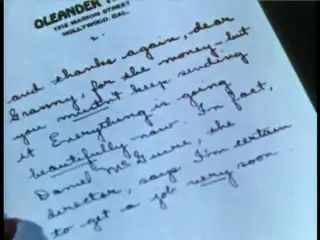 OLEANDER
1312 MARION STREET
HOLLYWOOD, CAL.
2.
and thanks again, dear
Granny, for the money - but
you mustn't keep sending
it. Everything is going
beautifully now. In fact,
Daniel McGuire, the
director, says I'm certain
to get a job very soon.